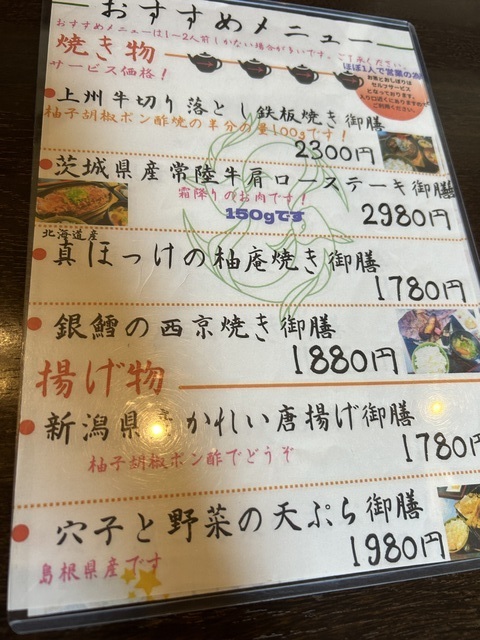 おすすめメニュー
おすすめメニューは1~2人前しかない場合が多いです。ご了承ください。
焼き物
サービス価格!
ほぼ1人で営業の為
お茶とおしぼりは
セルフサービス
となっております。
入り口近くにありますので
ご利用ください。
上州牛切り落とし鉄板焼き御膳
柚子胡椒ポン酢焼の半分の量100gです!
2300円
茨城県産常陸牛肩ロースステーキ御膳
霜降りのお肉です!
150gです
2980円
北海道産
真ほっけの柚庵焼き御膳
1780円
銀鱈の西京焼き御膳
1880円
揚げ物
新潟県 かれい唐揚げ御膳
1780円
柚子胡椒ポン酢でどうぞ
穴子と野菜の天ぷら御膳
1980円
島根県産です